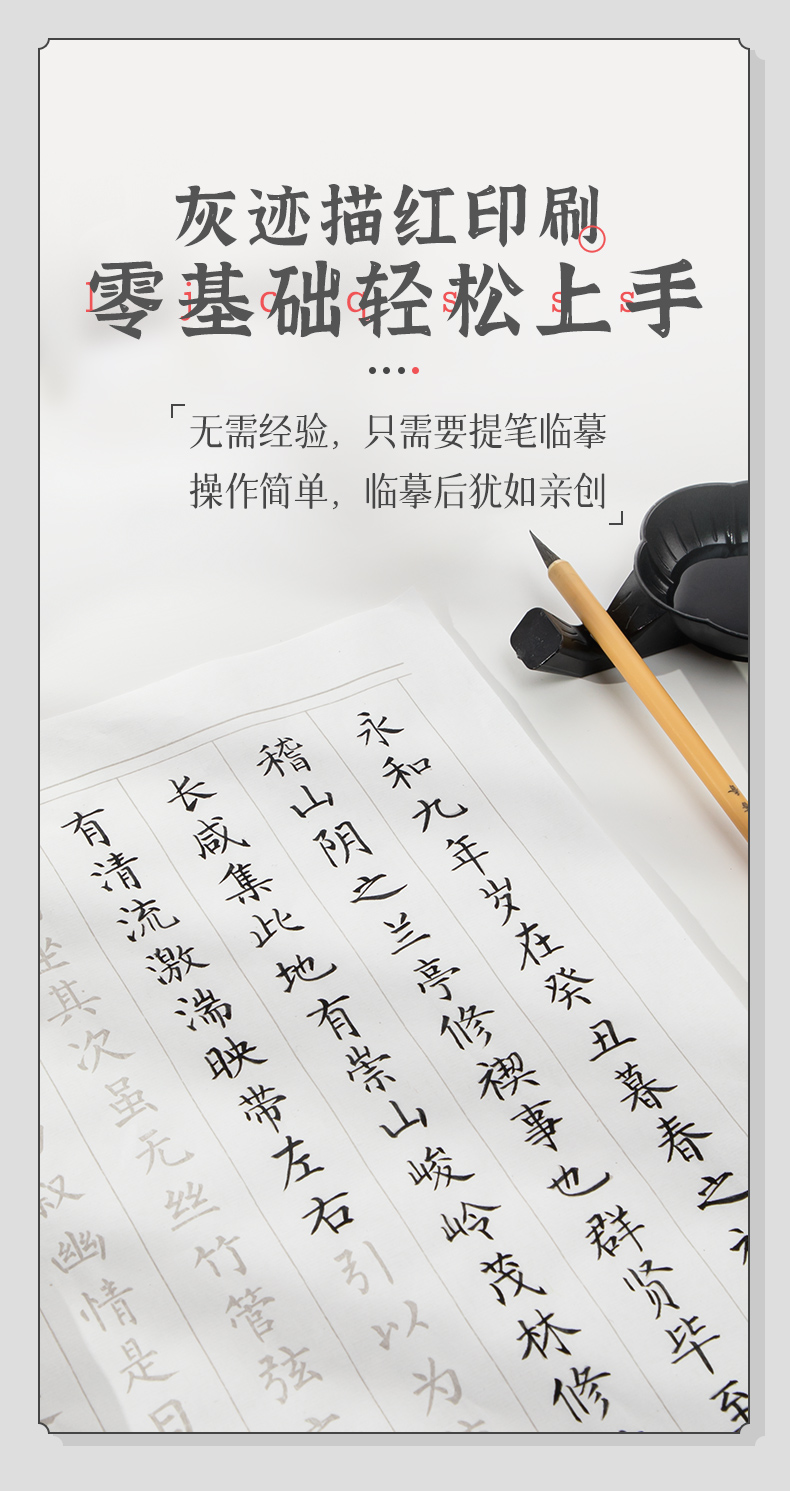 灰迹描红印刷
零基础轻松上手
l j c q s s s
无需经验，只需要提笔临摹
操作简单，临摹后犹如亲创
永和九年岁在癸丑暮春之
稽山阴之兰亭修禊事也群贤毕至
长咸集此地有崇山峻岭茂林修
有清流激湍映带左右引以为
坐其次虽无丝竹管弦
叙幽情是日